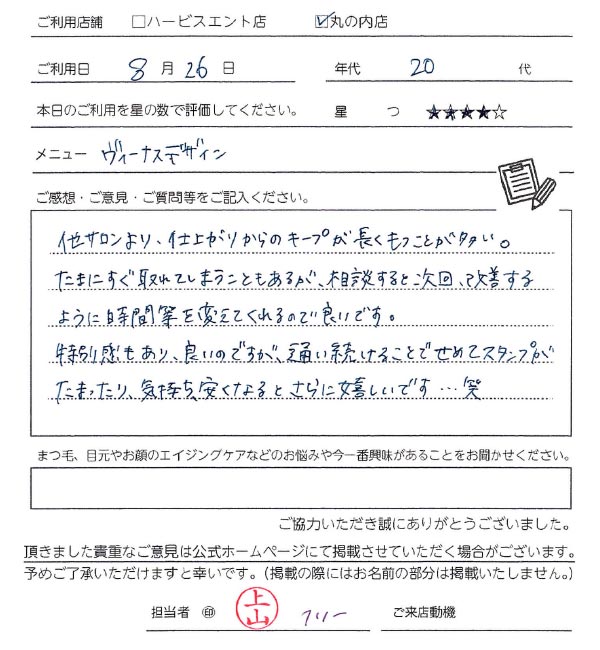 ご利用店舗 □ハービスエント店 ☑丸の内店
ご利用日 8 月 26 日 年代 20 代
本日のご利用を星の数で評価してください。 星 つ ★★★★☆
メニュー ヴィーナスデザイン
ご感想・ご意見・ご質問等をご記入ください。
他サロンより、仕上がりからのキープが長くもつことが多い。
たまにすぐ取れてしまうこともあるが、相談すると次回、改善する
ように時間等を変えてくれるので良いです。
特別感もあり、良いのですが、通い続けることでせめてスタンプが
たまったり、気持ち安くなるとさらに嬉しいです…笑
まつ毛、目元やお顔のエイジングケアなどのお悩みや今一番興味があることをお聞かせください。
ご協力いただき誠にありがとうございました。
頂きました貴重なご意見は公式ホームページにて掲載させていただく場合がございます。
予めご了承いただけますと幸いです。(掲載の際にはお名前の部分は掲載いたしません。)
担当者 ㊞ 上山 フリー ご来店動機